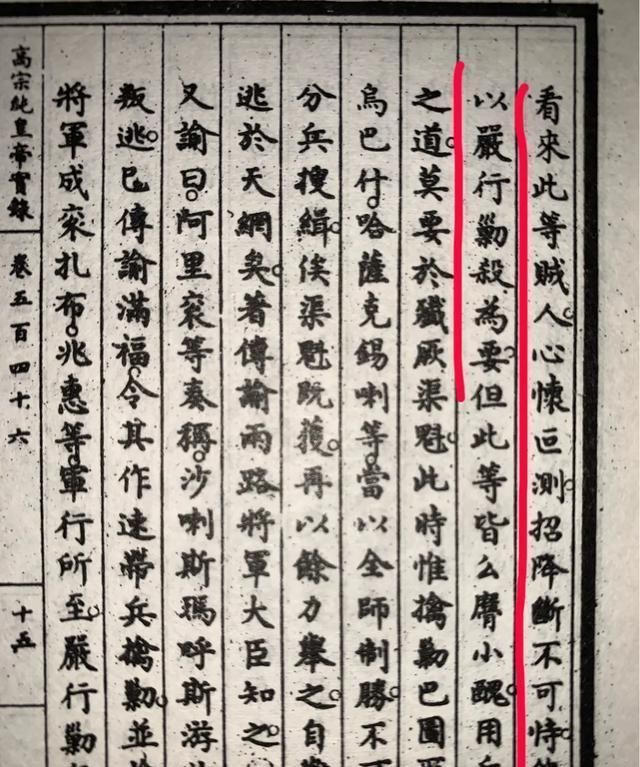 看來此等賊人。心懷叵測。招降斷不可恃。
以嚴行勦殺為要。但此等皆么麿小醜。用
之道。莫要於殲厥渠魁。此時惟擒勦巴圖
烏巴什。哈薩克錫喇等。當以全師制勝。不
分兵搜緝。俟渠魁既獲。再以餘力舉之。自
逃於天網矣。著傳諭兩路將軍大臣知之。
又諭曰。阿里衮等奏稱。沙喇斯瑪呼斯游
叛逃。已傳諭滿福。令其作速帶兵擒勦。並
將軍成衮扎布。兆惠等。軍行所至。嚴行勦
高宗純皇帝實錄
卷五百四十六
十五